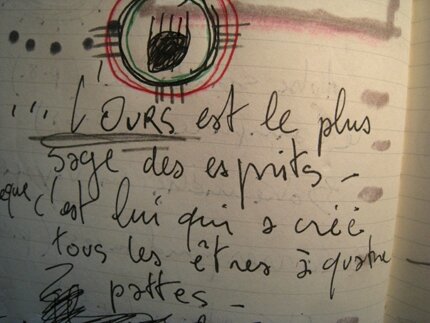 ''' L'OURS est le plus
sage des esprits -
c'est lui qui a créé
tous les êtres à quatre
pattes -